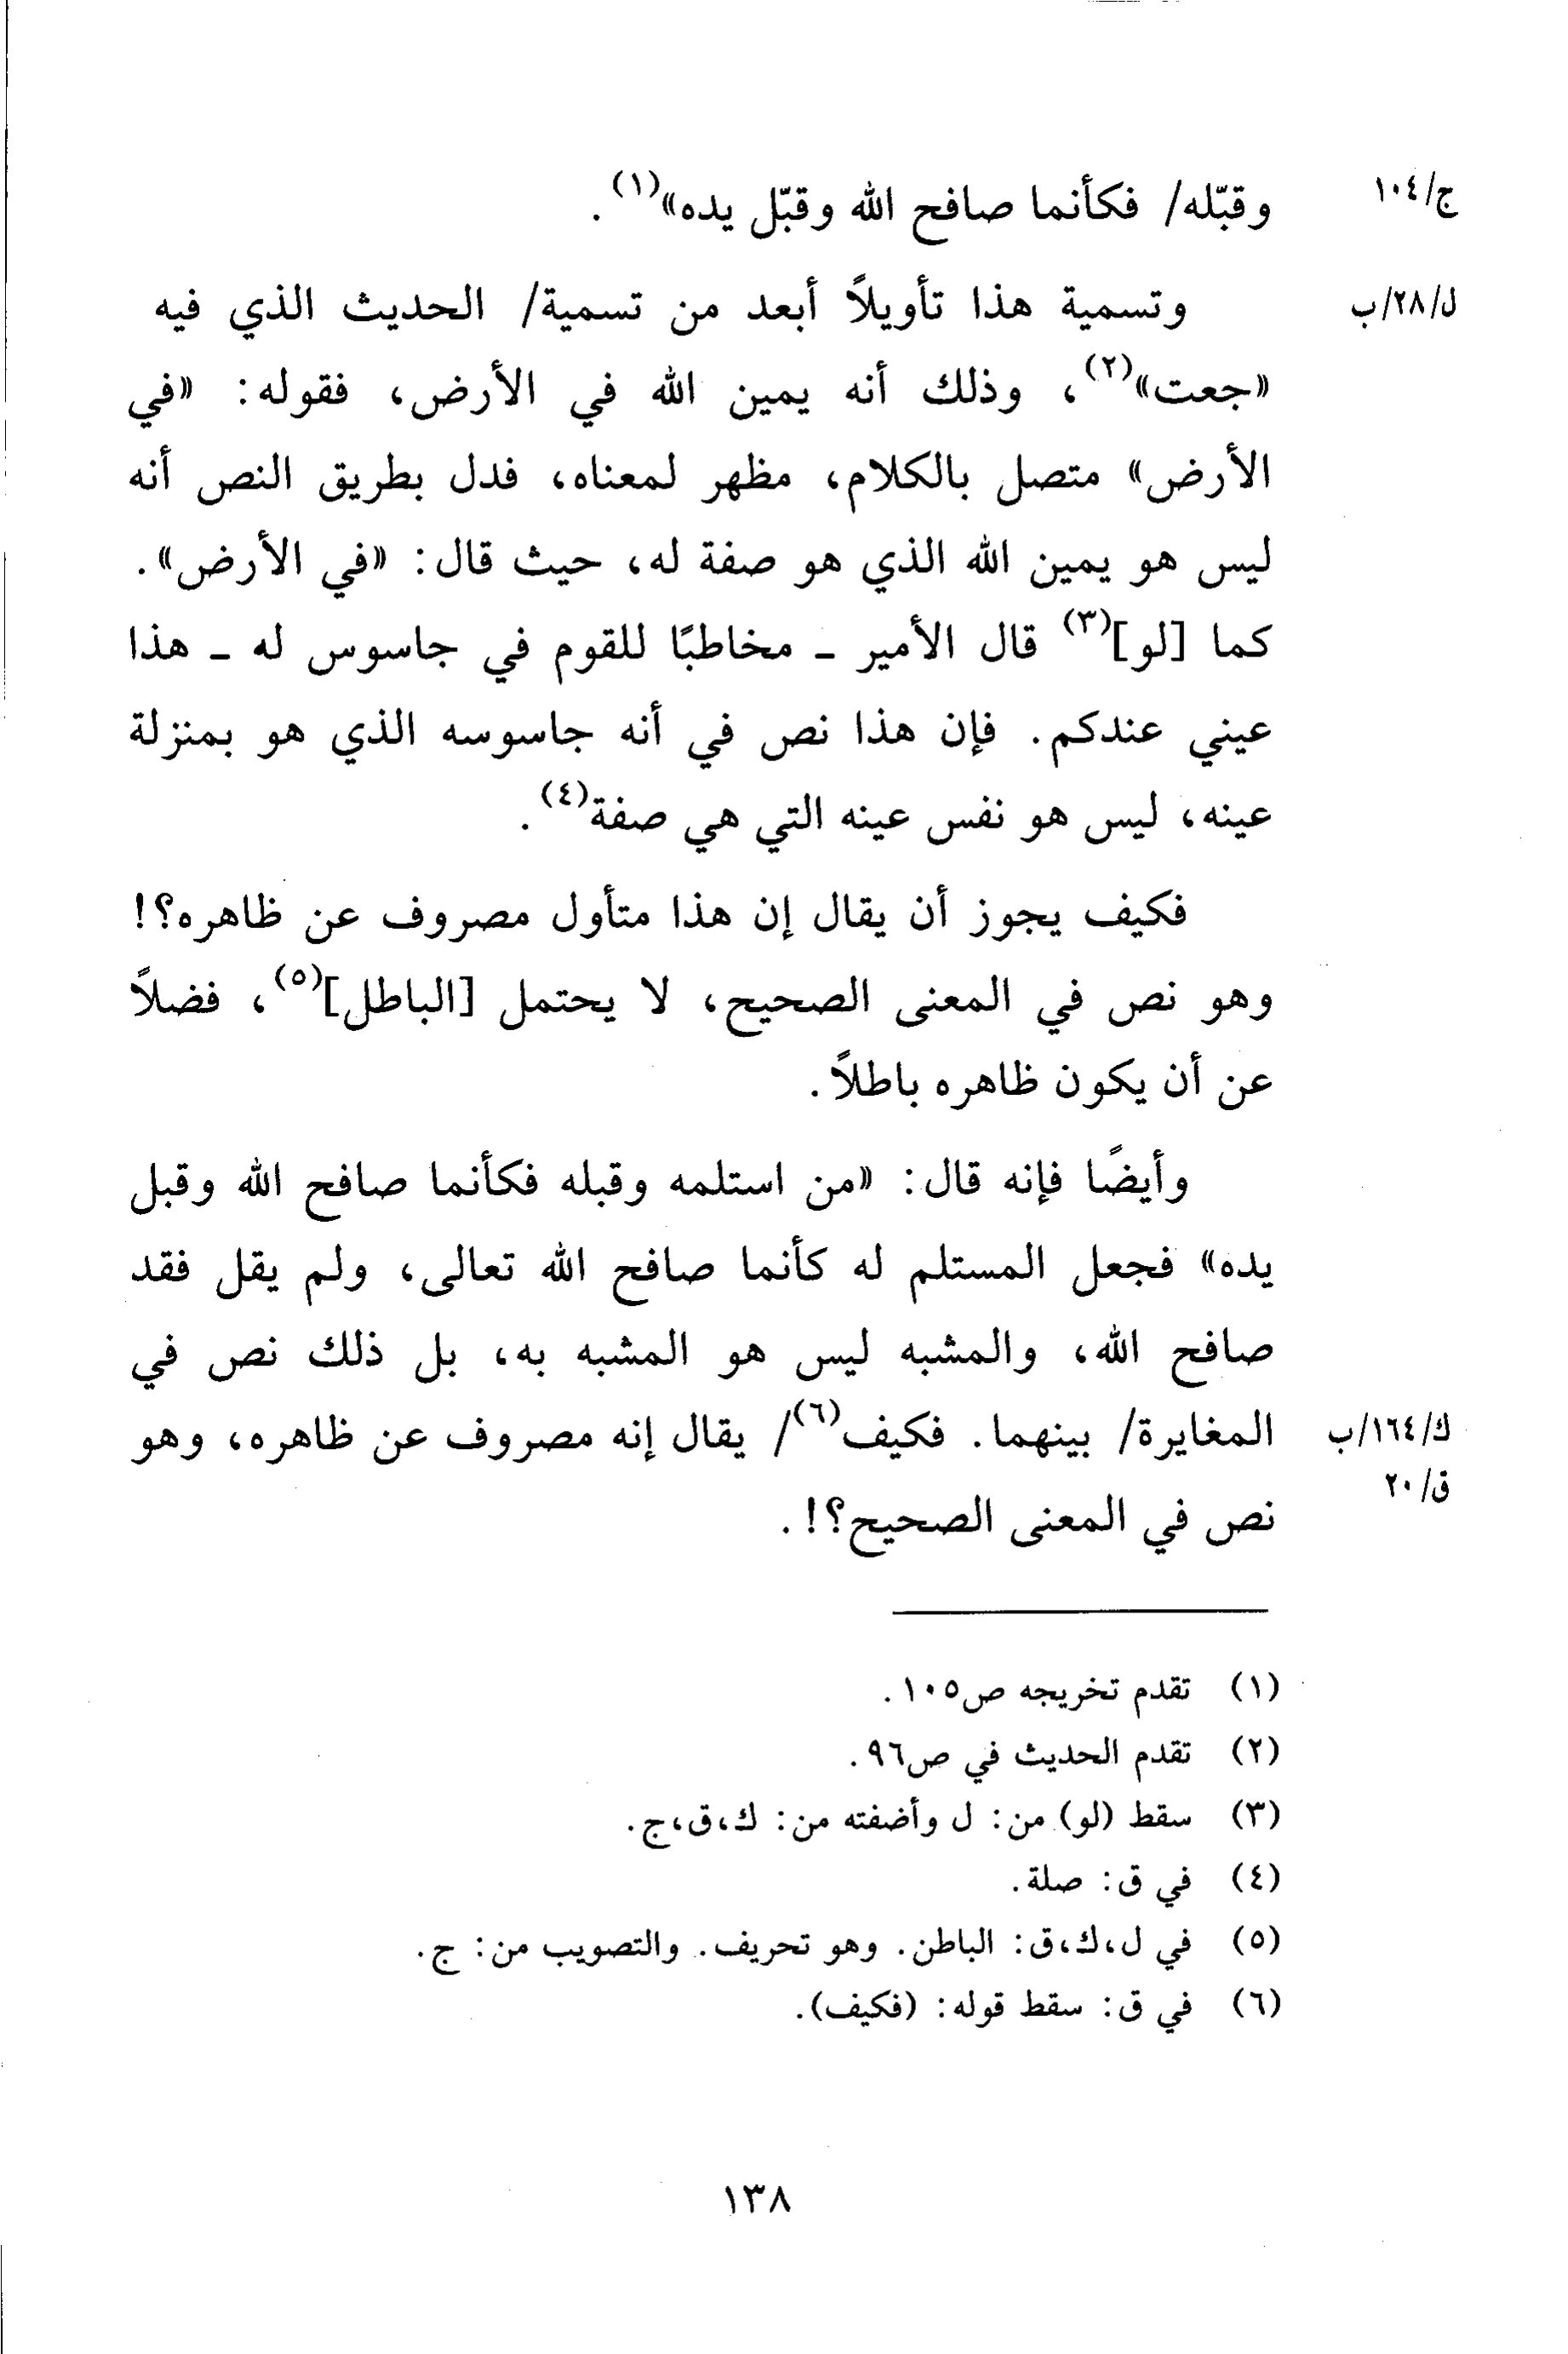 وقبّله/ فكأنما صافح الله وقبّل يده»(١). ج/١٠٤
وتسمية هذا تأويلاً أبعد من تسمية/ الحديث الذي فيه ل/٢٨/ب
«جعت»(٢)، وذلك أنه يمين الله في الأرض، فقوله: «في
الأرض» متصل بالكلام، مظهر لمعناه، فدل بطريق النص أنه
ليس هو يمين الله الذي هو صفة له، حيث قال: «في الأرض».
كما [لو](٣) قال الأمير - مخاطبًا للقوم في جاسوس له - هذا
عيني عندكم. فإن هذا نص في أنه جاسوسه الذي هو بمنزلة
عينه، ليس هو نفس عينه التي هي صفة(٤).
فكيف يجوز أن يقال إن هذا متأول مصروف عن ظاهره؟!
وهو نص في المعنى الصحيح، لا يحتمل [الباطل](٥)، فضلاً
عن أن يكون ظاهره باطلاً.
وأيضًا فإنه قال: «من استلمه وقبله فكأنما صافح الله وقبل
يده» فجعل المستلم له كأنما صافح الله تعالى، ولم يقل فقد
صافح الله، والمشبه ليس هو المشبه به، بل ذلك نص في
المغايرة/ بينهما. فكيف(٦)/ يقال إنه مصروف عن ظاهره، وهو ك/١٦٤/ب
ق/٢٠
نص في المعنى الصحيح؟!.
(١) تقدم تخريجه ص١٠٥.
(٢) تقدم الحديث في ص٩٦.
(٣) سقط (لو) من: ل وأضفته من: ك،ق،ج.
(٤) في ق: صلة.
(٥) في ل،ك،ق: الباطن. وهو تحريف. والتصويب من: ج.
(٦) في ق: سقط قوله: (فكيف).
١٣٨